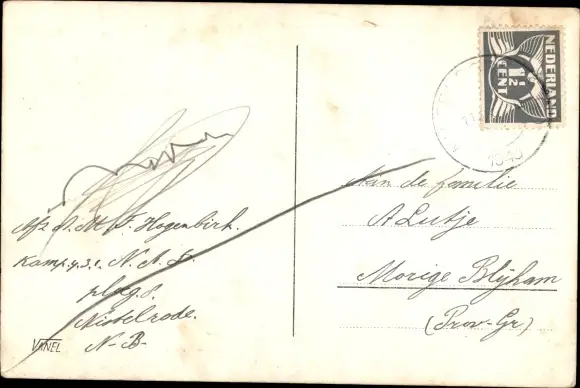 NEDERLAND
1½
CENT
1940
Aan de familie
A Lutje
Morige Blijham
(Prov-Gr.)
Afz. P. M. F. Hogenbirk.
Kamp. 4 3 1. N. A. D.
ploeg 8.
Nistelrode.
N-B-
VANEL